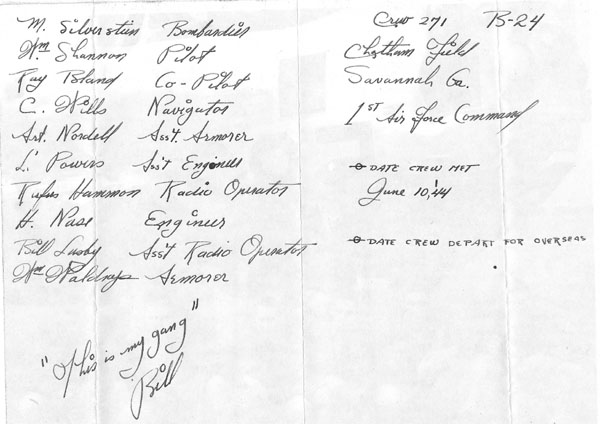 M. Silverstein Bombardier
Wm. Shannon Pilot
Ray Bland Co-Pilot
C. Wills Navigator
Art. Nordell Ass't. Armorer
L. Powers Ass't Engineer
Rufus Hammon Radio Operator
H. Nase Engineer
Bill Lusby Ass't Radio Operator
Wm Waldrop Armorer
"This is my gang"
Bill
Crew 271 B-24
Chatham Field
Savannah Ga.
1st Air Force Command
DATE CREW MET
June 10, '44
DATE CREW DEPART FOR OVERSEAS